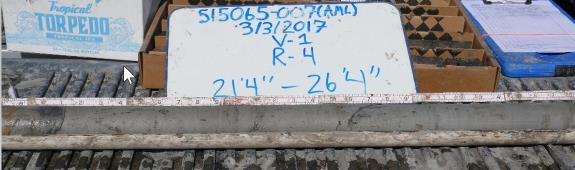 Tropical
TORPEDO
515065-007(AML)
3/3/2017
V-1
R-4
21'4" - 26'4"